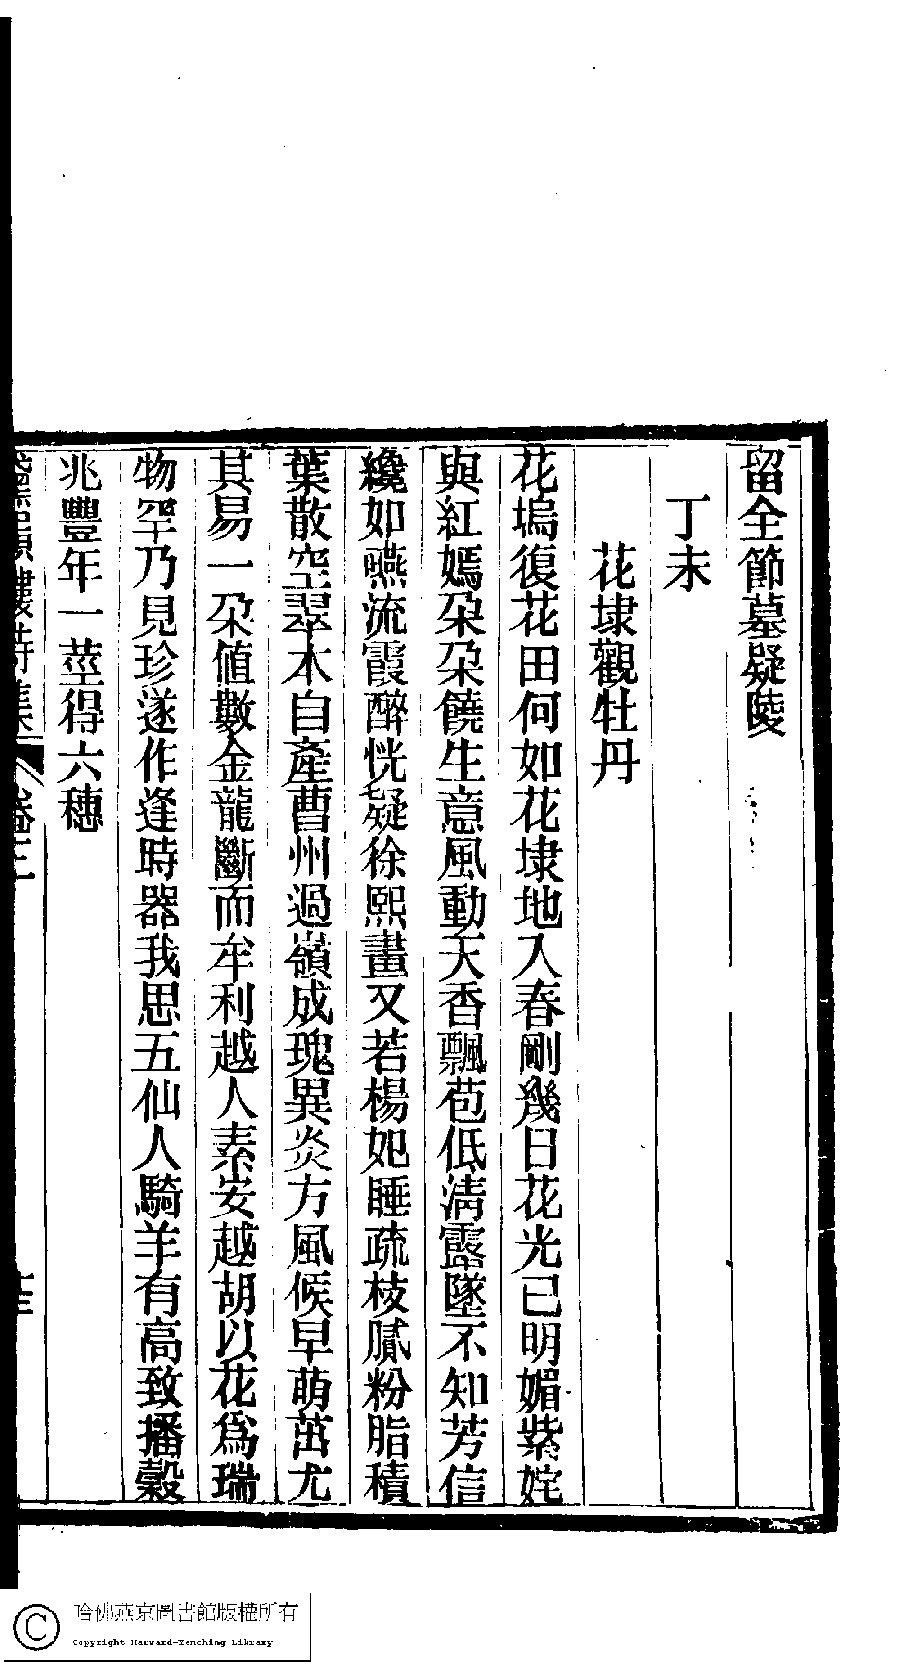 留全節墓疑陵
丁未
花埭觀牡丹
花塢復花田何如花埭地入春剛幾日花光已明媚紫姹
與紅嫣朵朵饒生意風動天香飄苞低清露墜不知芳信
纔如嚥流霞醉恍疑徐熙畫又若楊妃睡疏枝膩粉脂積
葉散空翠本自產曹州過嶺成瑰異炎方風候早萌茁尤
其易一朵値數金龍斷而牟利越人素安越胡以花爲瑞
物罕乃見珍遂作逢時器我思五仙人騎羊有高致播穀
兆豐年一莖得六穗
樓詩集
卷三
哈佛燕京圖書館版權所有
Copyright Harvard-Yenching Library